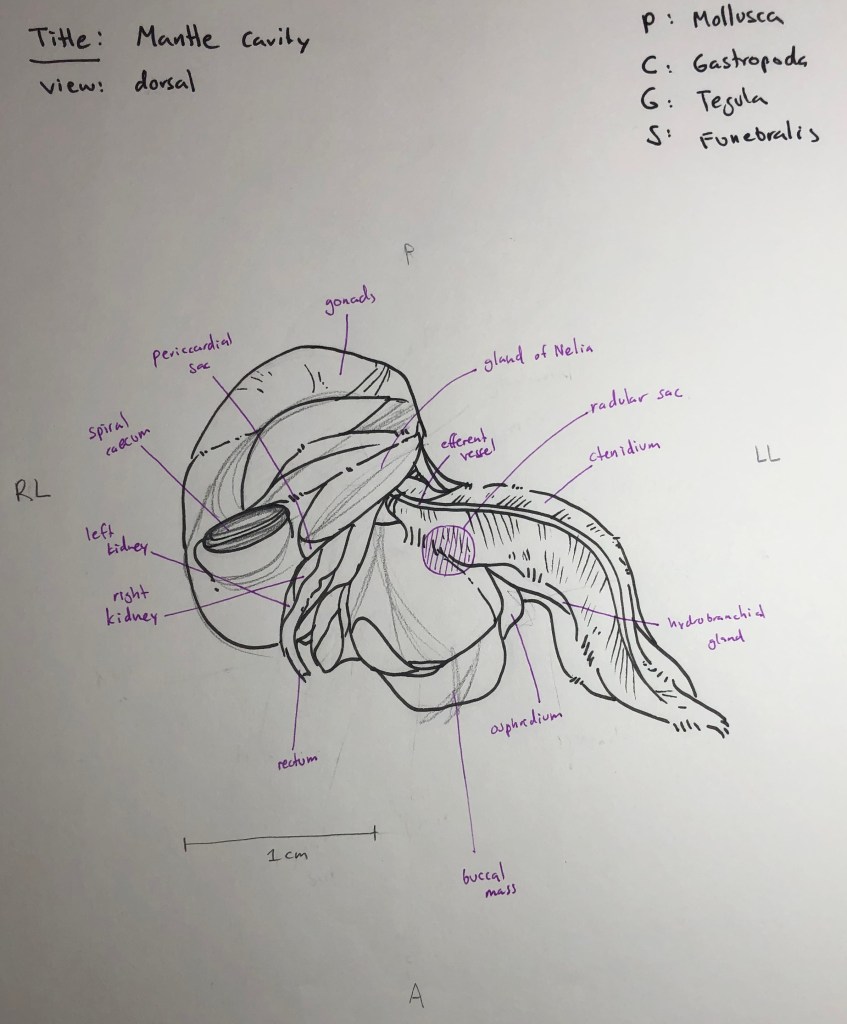 Title: Mantle Cavity
view: dorsal
P: Mollusca
C: Gastropoda
G: Tegula
S: Funebralis
P
gonads
periccardial
sac
gland of Nelia
radular sac
spiral
caecum
efferent
vessel
ctenidium
RL
LL
left
kidney
right
kidney
hydrobranchial
gland
osphradium
rectum
1 cm
buccal
mass
A